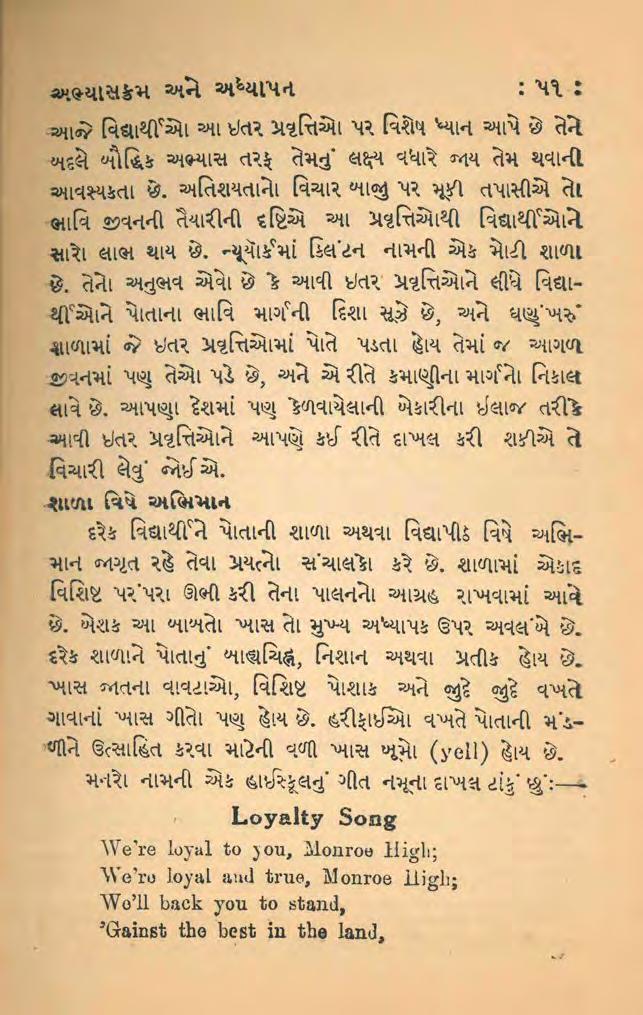 અભ્યાસક્રમ અને અધ્યાપન : ૫૧ :
આજે વિદ્યાર્થીઓ આ ઇતર પ્રવૃત્તિઓ પર વિશેષ ધ્યાન આપે છે તેને
બદલે બૌદ્ધિક અભ્યાસ તરફ તેમનું લક્ષ્ય વધારે જાય તેમ થવાની
આવશ્યકતા છે. અતિશયતાનો વિચાર બાજુ પર મૂકી તપાસીએ તો
ભાવિ જીવનની તૈયારીની દૃષ્ટિએ આ પ્રવૃત્તિઓથી વિદ્યાર્થીઓને
સારો લાભ થાય છે. ન્યૂયૉર્કમાં ક્લિંટન નામની એક મોટી શાળા
છે. તેનો અનુભવ એવો છે કે આવી ઇતર પ્રવૃત્તિઓને લીધે વિદ્યા-
ર્થીઓને પોતાના ભાવિ માર્ગની દિશા સૂઝે છે, અને ઘણુંખરું
શાળામાં જે ઇતર પ્રવૃત્તિઓમાં પોતે પડતા હોય તેમાં જ આગળ
જીવનમાં પણ તેઓ પડે છે, અને એ રીતે કમાણીના માર્ગનો નિકાલ
લાવે છે. આપણા દેશમાં પણ કેળવાયેલાની બેકારીના ઇલાજ તરીકે
આવી ઇતર પ્રવૃત્તિઓને આપણે કઈ રીતે દાખલ કરી શકીએ તે
વિચારી લેવું જોઈએ.
શાળા વિષે અભિમાન
દરેક વિદ્યાર્થીને પોતાની શાળા અથવા વિદ્યાપીઠ વિષે અભિ-
માન જાગૃત રહે તેવા પ્રયત્નો સંચાલકો કરે છે. શાળામાં એકાદ
વિશિષ્ટ પરંપરા ઊભી કરી તેના પાલનનો આગ્રહ રાખવામાં આવે
છે. બેશક આ બાબતો ખાસ તો મુખ્ય અધ્યાપક ઉપર અવલંબે છે.
દરેક શાળાને પોતાનું બાહ્યચિહ્ન, નિશાન અથવા પ્રતીક હોય છે.
ખાસ જાતના વાવટાઓ, વિશિષ્ટ પોશાક અને જુદે જુદે વખતે
ગાવાનાં ખાસ ગીતો પણ હોય છે. હરીફાઈઓ વખતે પોતાની મંડ-
ળીને ઉત્સાહિત કરવા માટેની વળી ખાસ બૂમો (yell) હોય છે.
મનરો નામની એક હાઇસ્કૂલનું ગીત નમૂના દાખલ ટાંકું છું:—
Loyalty Song
We're loyal to you, Monroe High;
We're loyal and true, Monroe High;
We'll back you to stand,
'Gainst the best in the land,